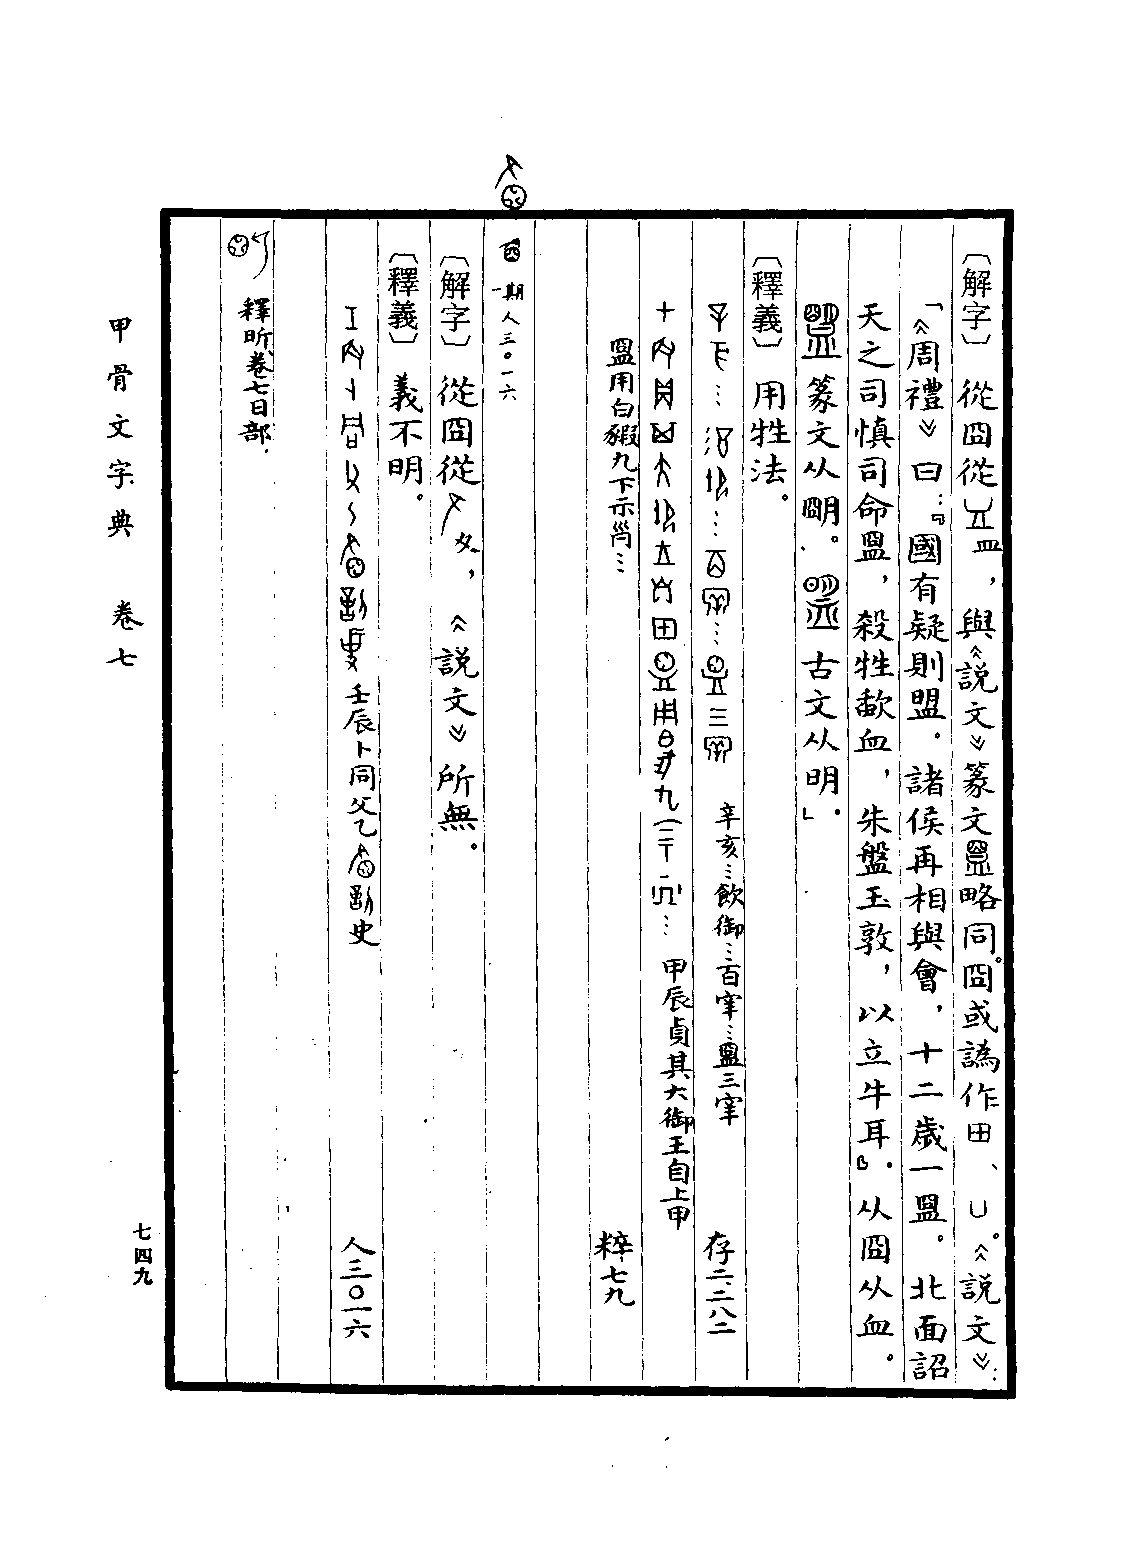 〔解字〕從囧從皿，與《說文》篆文略同。囧或譌作田、凵。《說文》：
「《周禮》曰：『國有疑則盟。諸侯再相與會，十二歲一盟。北面詔
天之司慎司命盟，殺牲歃血，朱盤玉敦，以立牛耳』。从囧从血。
篆文从朙。古文从明。」
〔釋義〕用牲法。
辛亥…飲御…百宰…盟三宰 存二·二八二
甲辰貞其大御王自上甲
盟用白豭九下示 粹七九
一期 人三〇一六
〔解字〕從囧從夊，《說文》所無。
〔釋義〕義不明。
壬辰卜同父乙史 人三〇一六
釋昕，卷七日部。
甲骨文字典 卷七
七四九